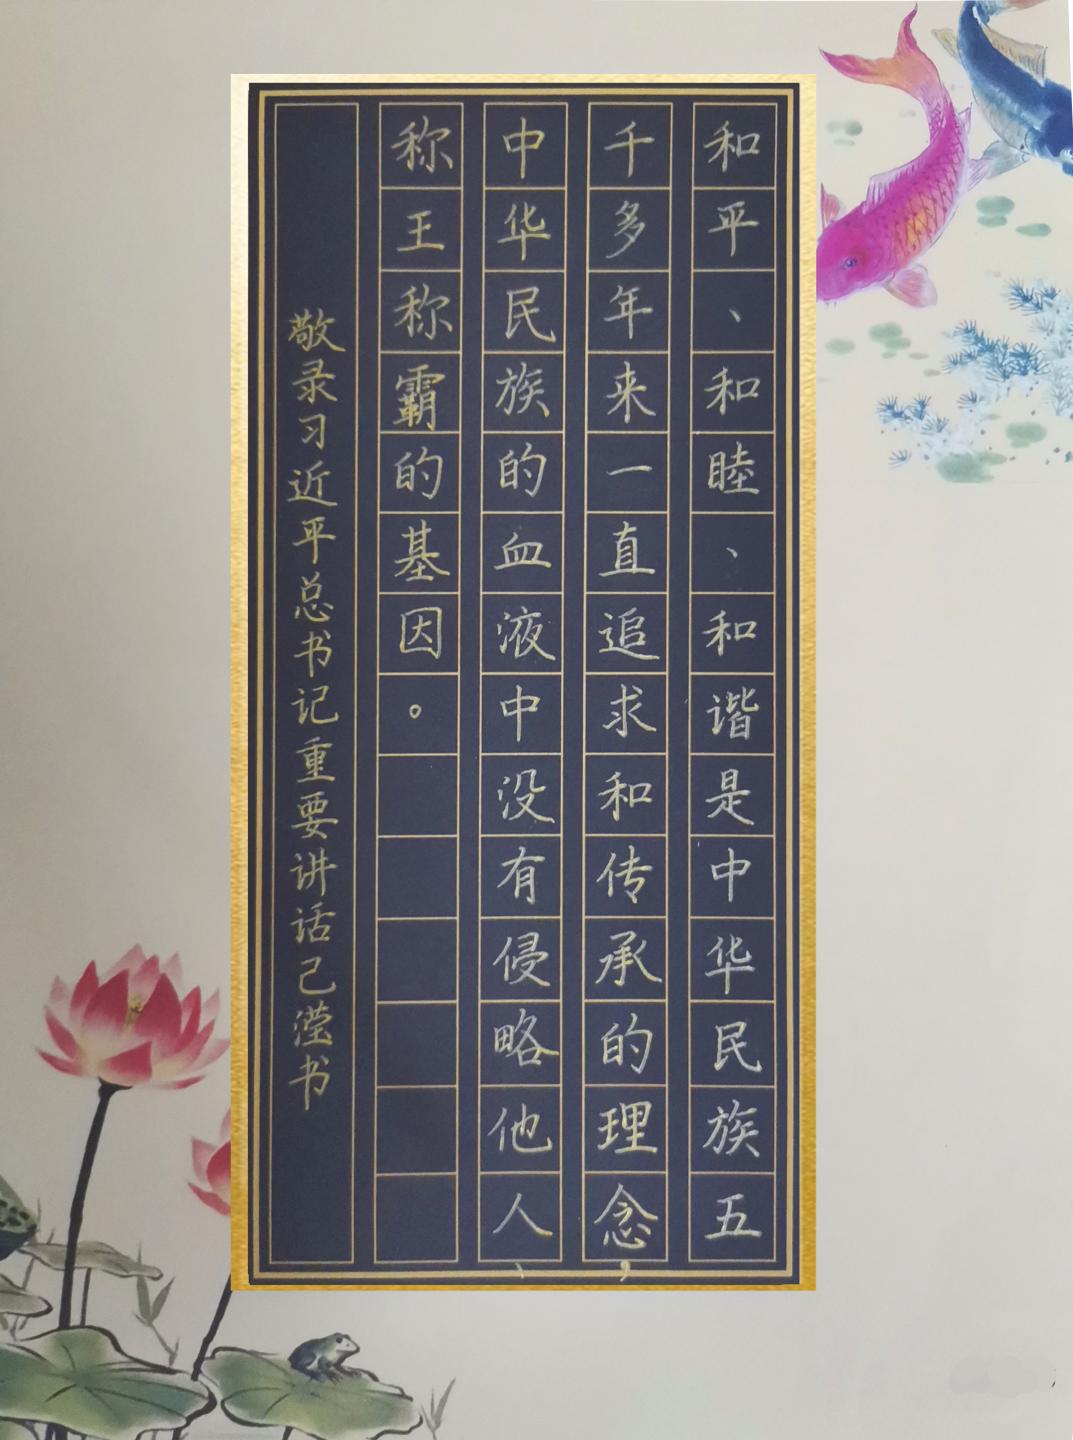 和平、和睦、和谐是中华民族五
千多年来一直追求和传承的理念，
中华民族的血液中没有侵略他人、
称王称霸的基因。
敬录习近平总书记重要讲话己滢书